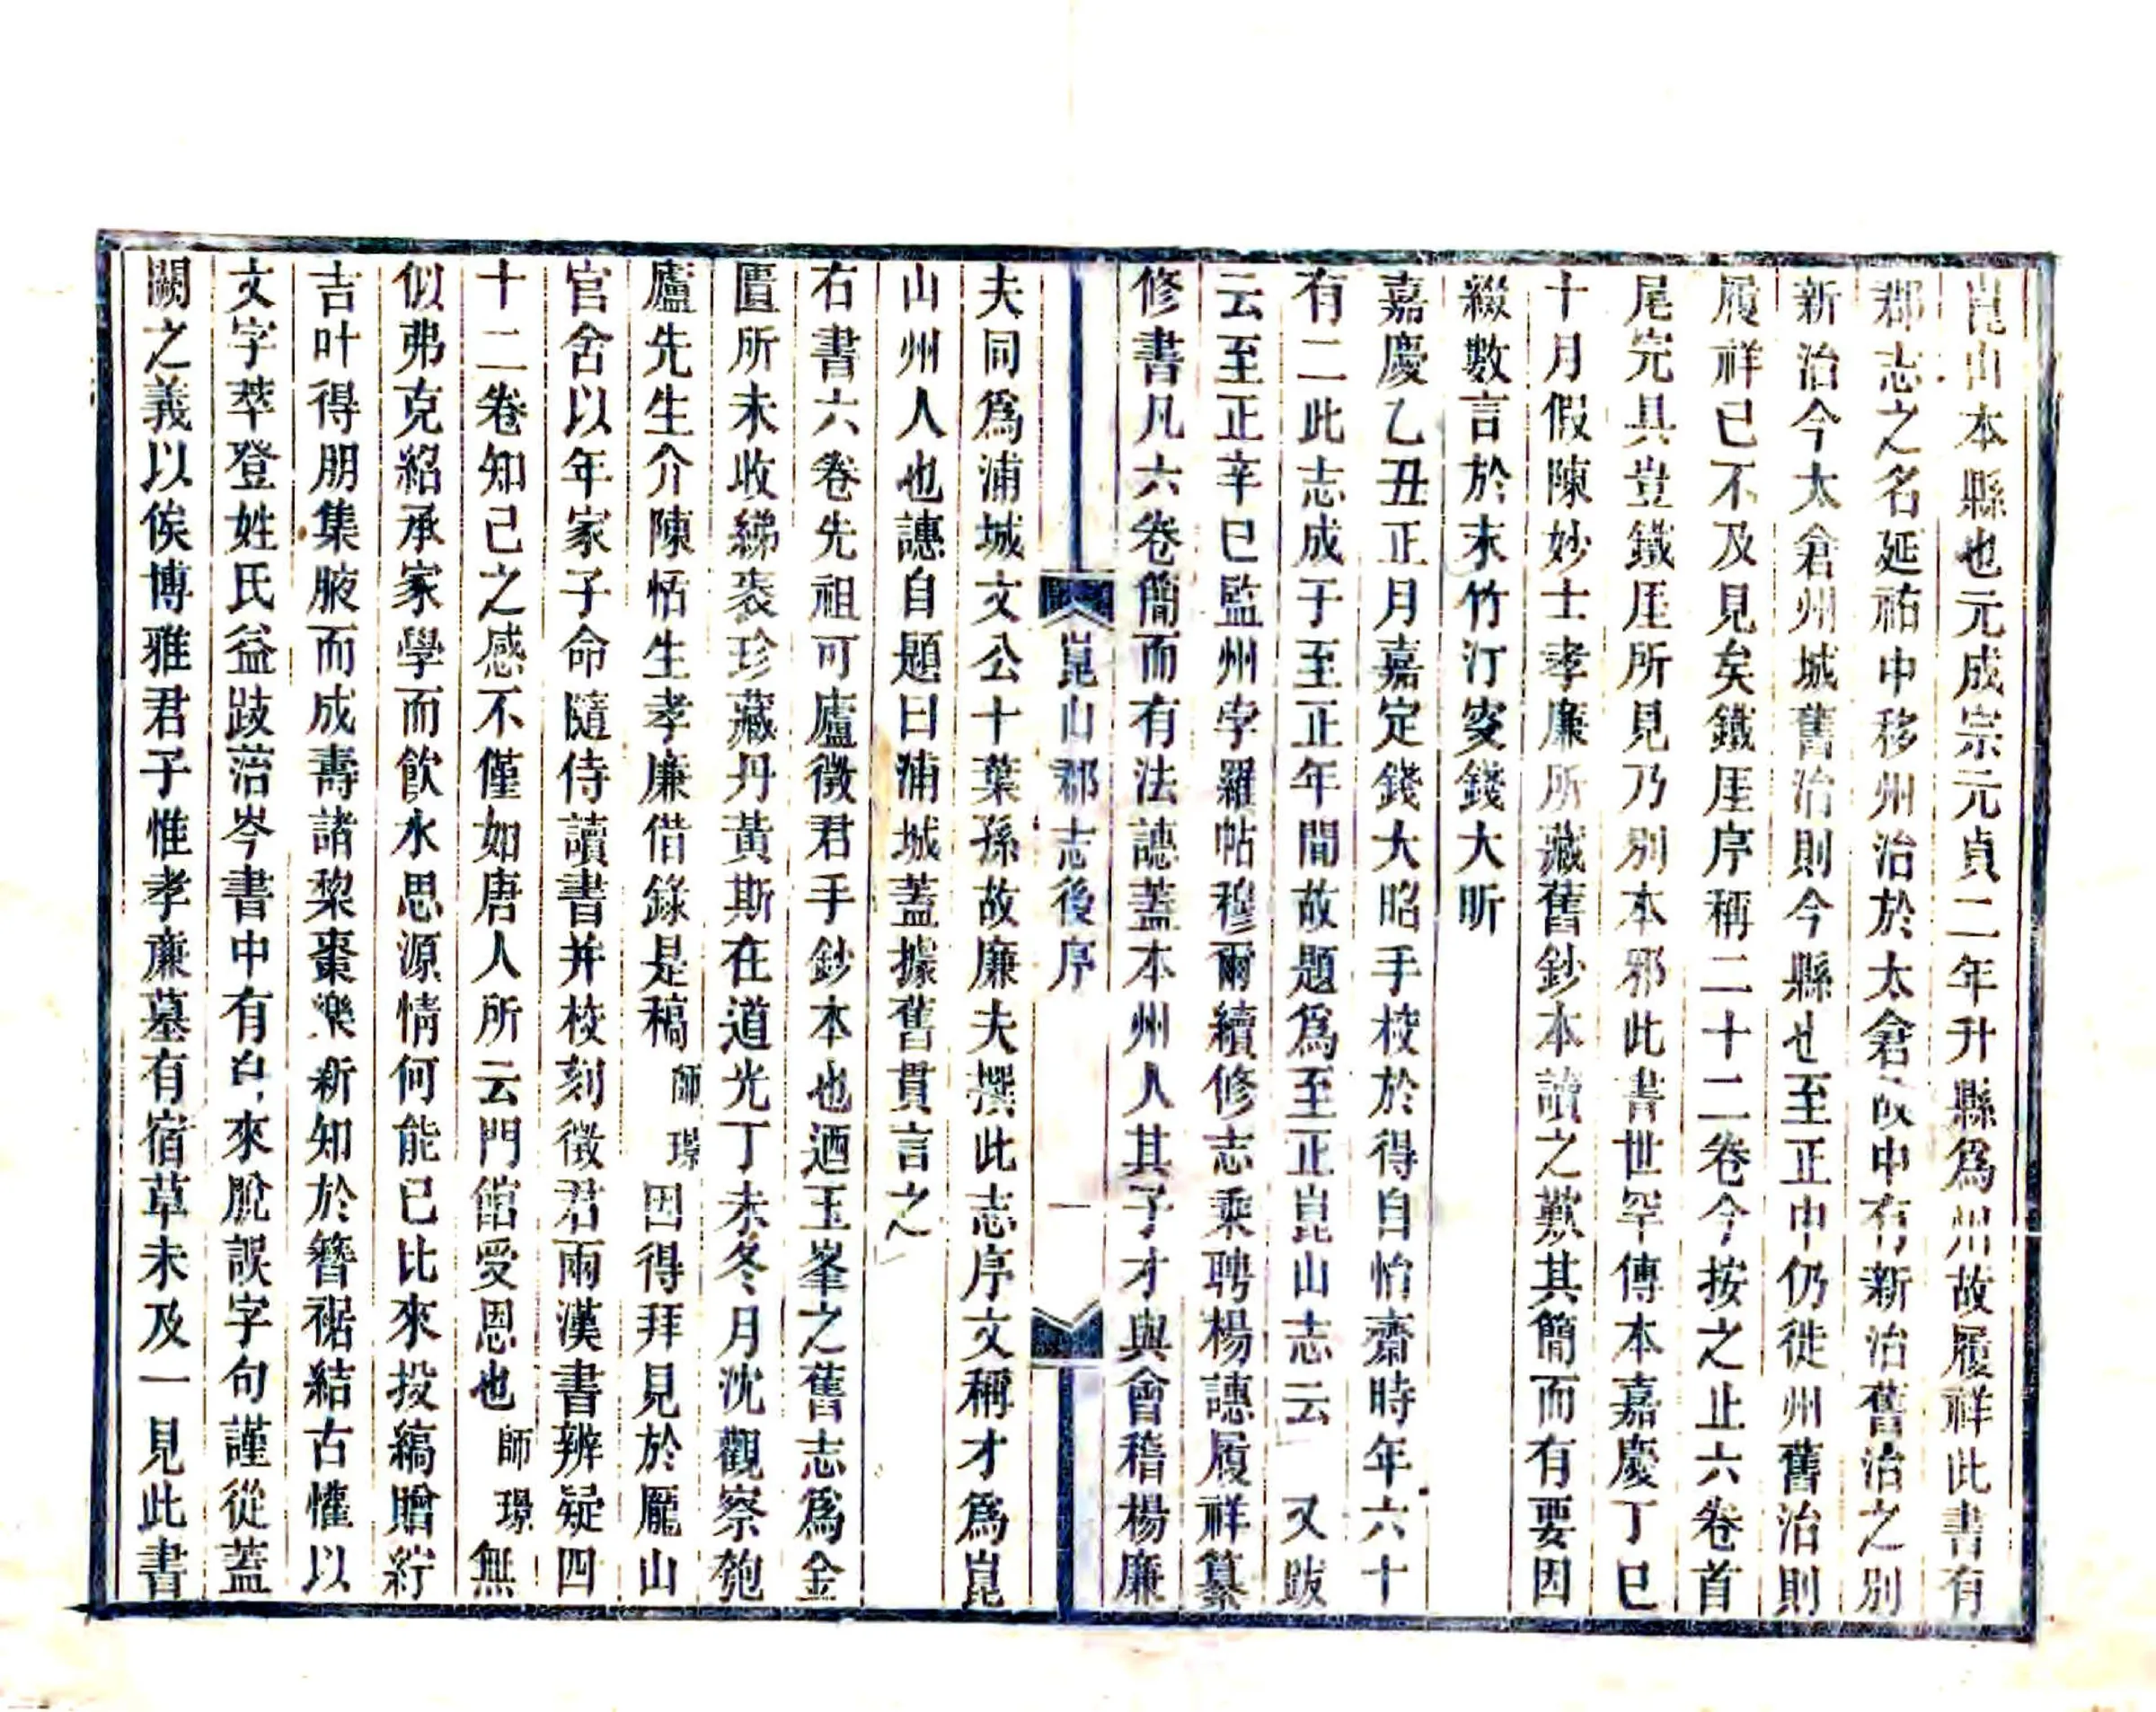 崑山本縣也元成宗元貞二年升縣爲州故履祥此書有
郡志之名延祐中移州治於太倉故中有新治舊治之別
新治今太倉州城舊治則今縣也至正中仍徙州舊治則
履祥已不及見矣鐵厓序稱二十二卷今按之止六卷首
尾完具豈鐵厓所見乃別本邪此書世罕傳本嘉慶丁巳
十月假陳妙士孝廉所藏舊鈔本讀之歎其簡而有要因
綴數言於末竹汀叜錢大昕
嘉慶乙丑正月嘉定錢大昭手校於得自怡齋時年六十
有二此志成于至正年間故題爲至正崑山志云 又跋
云至正辛巳監州孛羅帖穆爾續修志乘聘楊譓履祥纂
修書凡六卷簡而有法譓蓋本州人其子才與會稽楊廉
崑山郡志後序 一
夫同爲浦城文公十葉孫故廉夫撰此志序文稱才爲崑
山州人也譓自題曰浦城蓋據舊貫言之
右書六卷先祖可廬徵君手鈔本也迺玉峯之舊志爲金
匱所未收綈袠珍藏丹黃斯在道光丁未冬月沈觀察匏
廬先生介陳恬生孝廉借錄是稿師璟因得拜見於龎山
官舍以年家子命隨侍讀書并校刻徵君兩漢書辨疑四
十二卷知已之感不僅如唐人所云門館受恩也師璟無
似弗克紹承家學而飮水思源情何能已比來投縞贈紵
吉叶得朋集腋而成壽諸棃棗樂新知於簪裾結古懽以
文字萃登姓氏益跂菭岑書中有 來脫誤字句謹從蓋
闕之義以俟博雅君子惟孝廉墓有宿草未及一見此書